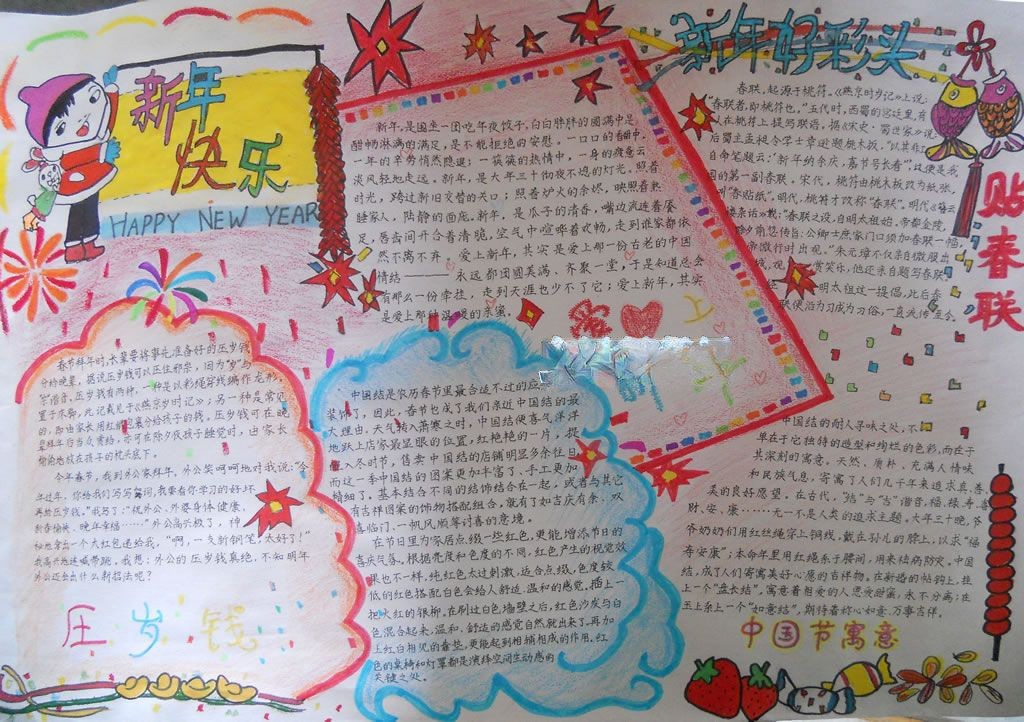 新年快乐
HAPPY NEW YEAR
新年好彩头
贴春联
新年,是围坐一团吃年夜饺子,白白胖胖的圆满中是
酣畅淋漓的满足,是不能拒绝的安慰。一口口的香甜中,
一年的辛劳悄然隐退;一筷筷的热情中,一身的疲惫云
淡风轻地走远。新年,是大年三十彻夜不熄的灯光,照着
时光,跨过新旧交替的天口;照着炉火的余烬,映照着熟
睡家人,陆静的面庞。新年,是瓜子的清香,嘴边流连着
足,唇齿间开合着清脆,空气中喧哗着欢畅,走到谁家都依
然不离不弃。爱上新年,其实是爱上那一份古老的中国
情结———永远都团圆美满、齐聚一堂,于是知道总会
有那么一份牵挂,走到天涯也少不了它;爱上新年,其实
是爱上那种温暖的亲蜜。
春联,起源于桃符。《燕京时岁记》上说:
“春联者,即桃符也。”五代时,西蜀的宫廷里,有
人在桃符上提写联语。据《宋史·蜀世家》说:
后蜀主孟昶令学士章逊题桃木板,“以其非工
自命笔题云:‘新年纳余庆,嘉节号长春’”,这便是我
国的第一副春联。宋代,桃符由桃木板改为纸张,
叫“春贴纸”。明代,桃符才改称“春联”。明代《簪云
楼杂话》载:“春联之设,自明太祖始。帝都金陵,
除夕前忽传旨:公卿士庶家门口须加春联一幅,
帝微行时出现。”朱元璋不仅亲自微服出
城,观赏笑乐,他还亲自题写春联。
明太祖这一提倡,此后春
联便沿为习成为习俗,一直流传至今。
春节拜年时,长辈要将事先准备好的压岁钱
分给晚辈,据说压岁钱可以压住邪祟,因为“岁”与
“祟”谐音,压岁钱有两种,一种是以彩绳穿线编作龙形,
置于床脚,此记载见于《燕京岁时记》;另一种是常见
的,即由家长用红纸包裹分给孩子的钱。压岁钱可在晚
辈拜年后当众赏给,亦可在除夕夜孩子睡觉时,由家长
偷偷地放在孩子的枕头底下。
今年春节,我到外公家拜年,外公笑呵呵地对我说:“今
年过年,你给我们写写贺词,我要看你学习的好坏
再给压岁钱。”我写了:“祝外公、外婆身体健康、
新春愉快、晚年幸福……”外公高兴极了,神
秘地拿出一个大红包递给我,“啊,一套新钢笔,太好了!”
我高兴地连喊带跳。我想:外公的压岁钱真绝,不知明年
外公还会出什么新招法呢?
压岁钱
中国结是农历春节里最合适不过的应
装饰了,因此,春节也成了我们亲近中国结的最
大理由。天气转入萧寒之时,中国结便喜气洋洋
地跃上店家最显眼的位置,红艳艳的一片,提
入冬时节,售卖中国结的店铺明显多余往日,
而这一季中国结的图案更加丰富了、手工更加
精细了。基本结合不同的结饰结合在一起,或者与其它
有吉祥图案的饰物搭配组合,就有了如吉庆有余、双
喜临门、一帆风顺等讨喜的意境。
在节日里为家居点缀一些红色,更能增添节日的
喜庆气氛。根据亮度和色度的不同,红色产生的视觉效
果也不一样。纯红色太过刺激,适合点缀,色度较
低的红色搭配白色会给人舒适、温和的感觉。插上一
把火红的银柳,在刷过白色墙壁之后,红色沙发与白
色混合起来,温和、舒适的感觉自然就出来了,再加
上红白相见的春垫,更能起到相辅相成的作用。红
色的桌椅和灯罩都是演绎空间生动感的
关键之处。
中国结的耐人寻味之处,不
单在于它独特的造型和绚烂的色彩,而在于
其深刻的寓意。天然、质朴、充满人情味
和民族气息,寄寓了人们几千年来追求真、善、
美的良好愿望。在古代,“结”与“吉”谐音,福、禄、寿、喜、
财、安、康……无一不是人类的追求主题。大年三十晚,爷
爷奶奶们用红丝绳穿上铜线,戴在孙儿的脖上,以求“福
寿安康”;本命年里用红绳系于腰间,用来祛病防灾。中国
结,成了人们寄寓美好心愿的吉祥物。在新婚的帖钩上,挂
上一个“盘长结”,寓意着相爱的人恩爱甜蜜,永不分离;在
玉上系上一个“如意结”,期待着称心如意、万事吉祥。
中国节寓意